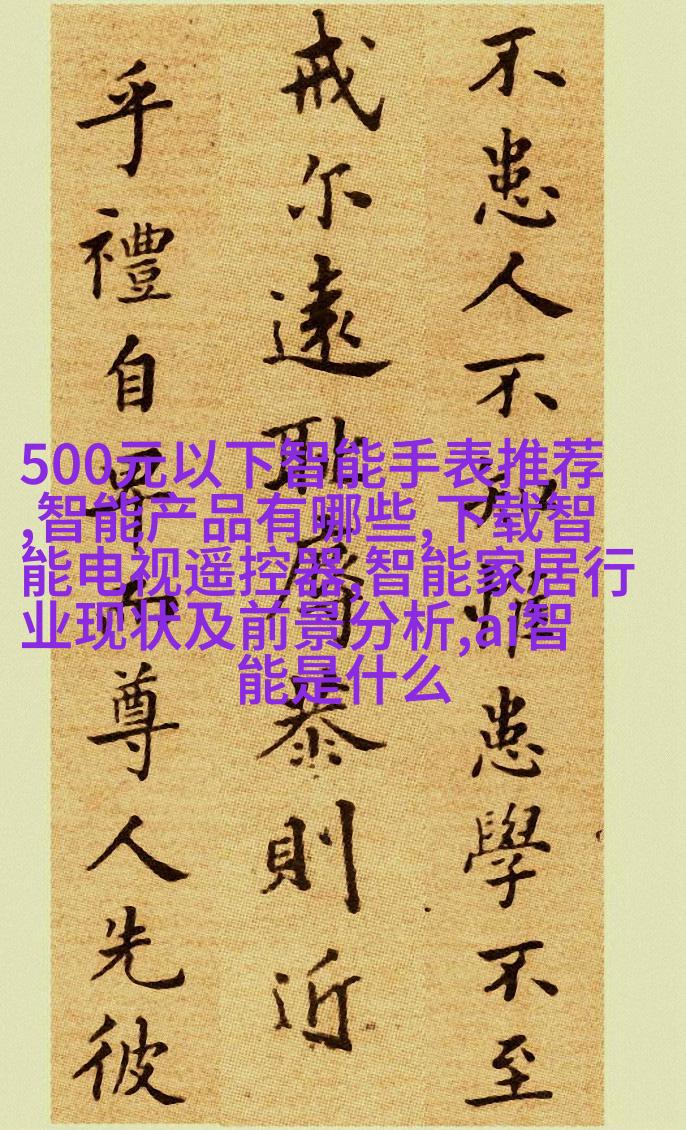 不患人不知惟患學不至
戒尔遠耻辱恭則近
乎禮自卑而尊人先彼
500元以下智能手表推荐
,智能产品有哪些,下载智
能电视遥控器,智能家居行
业现状及前景分析,ai智
能是什么